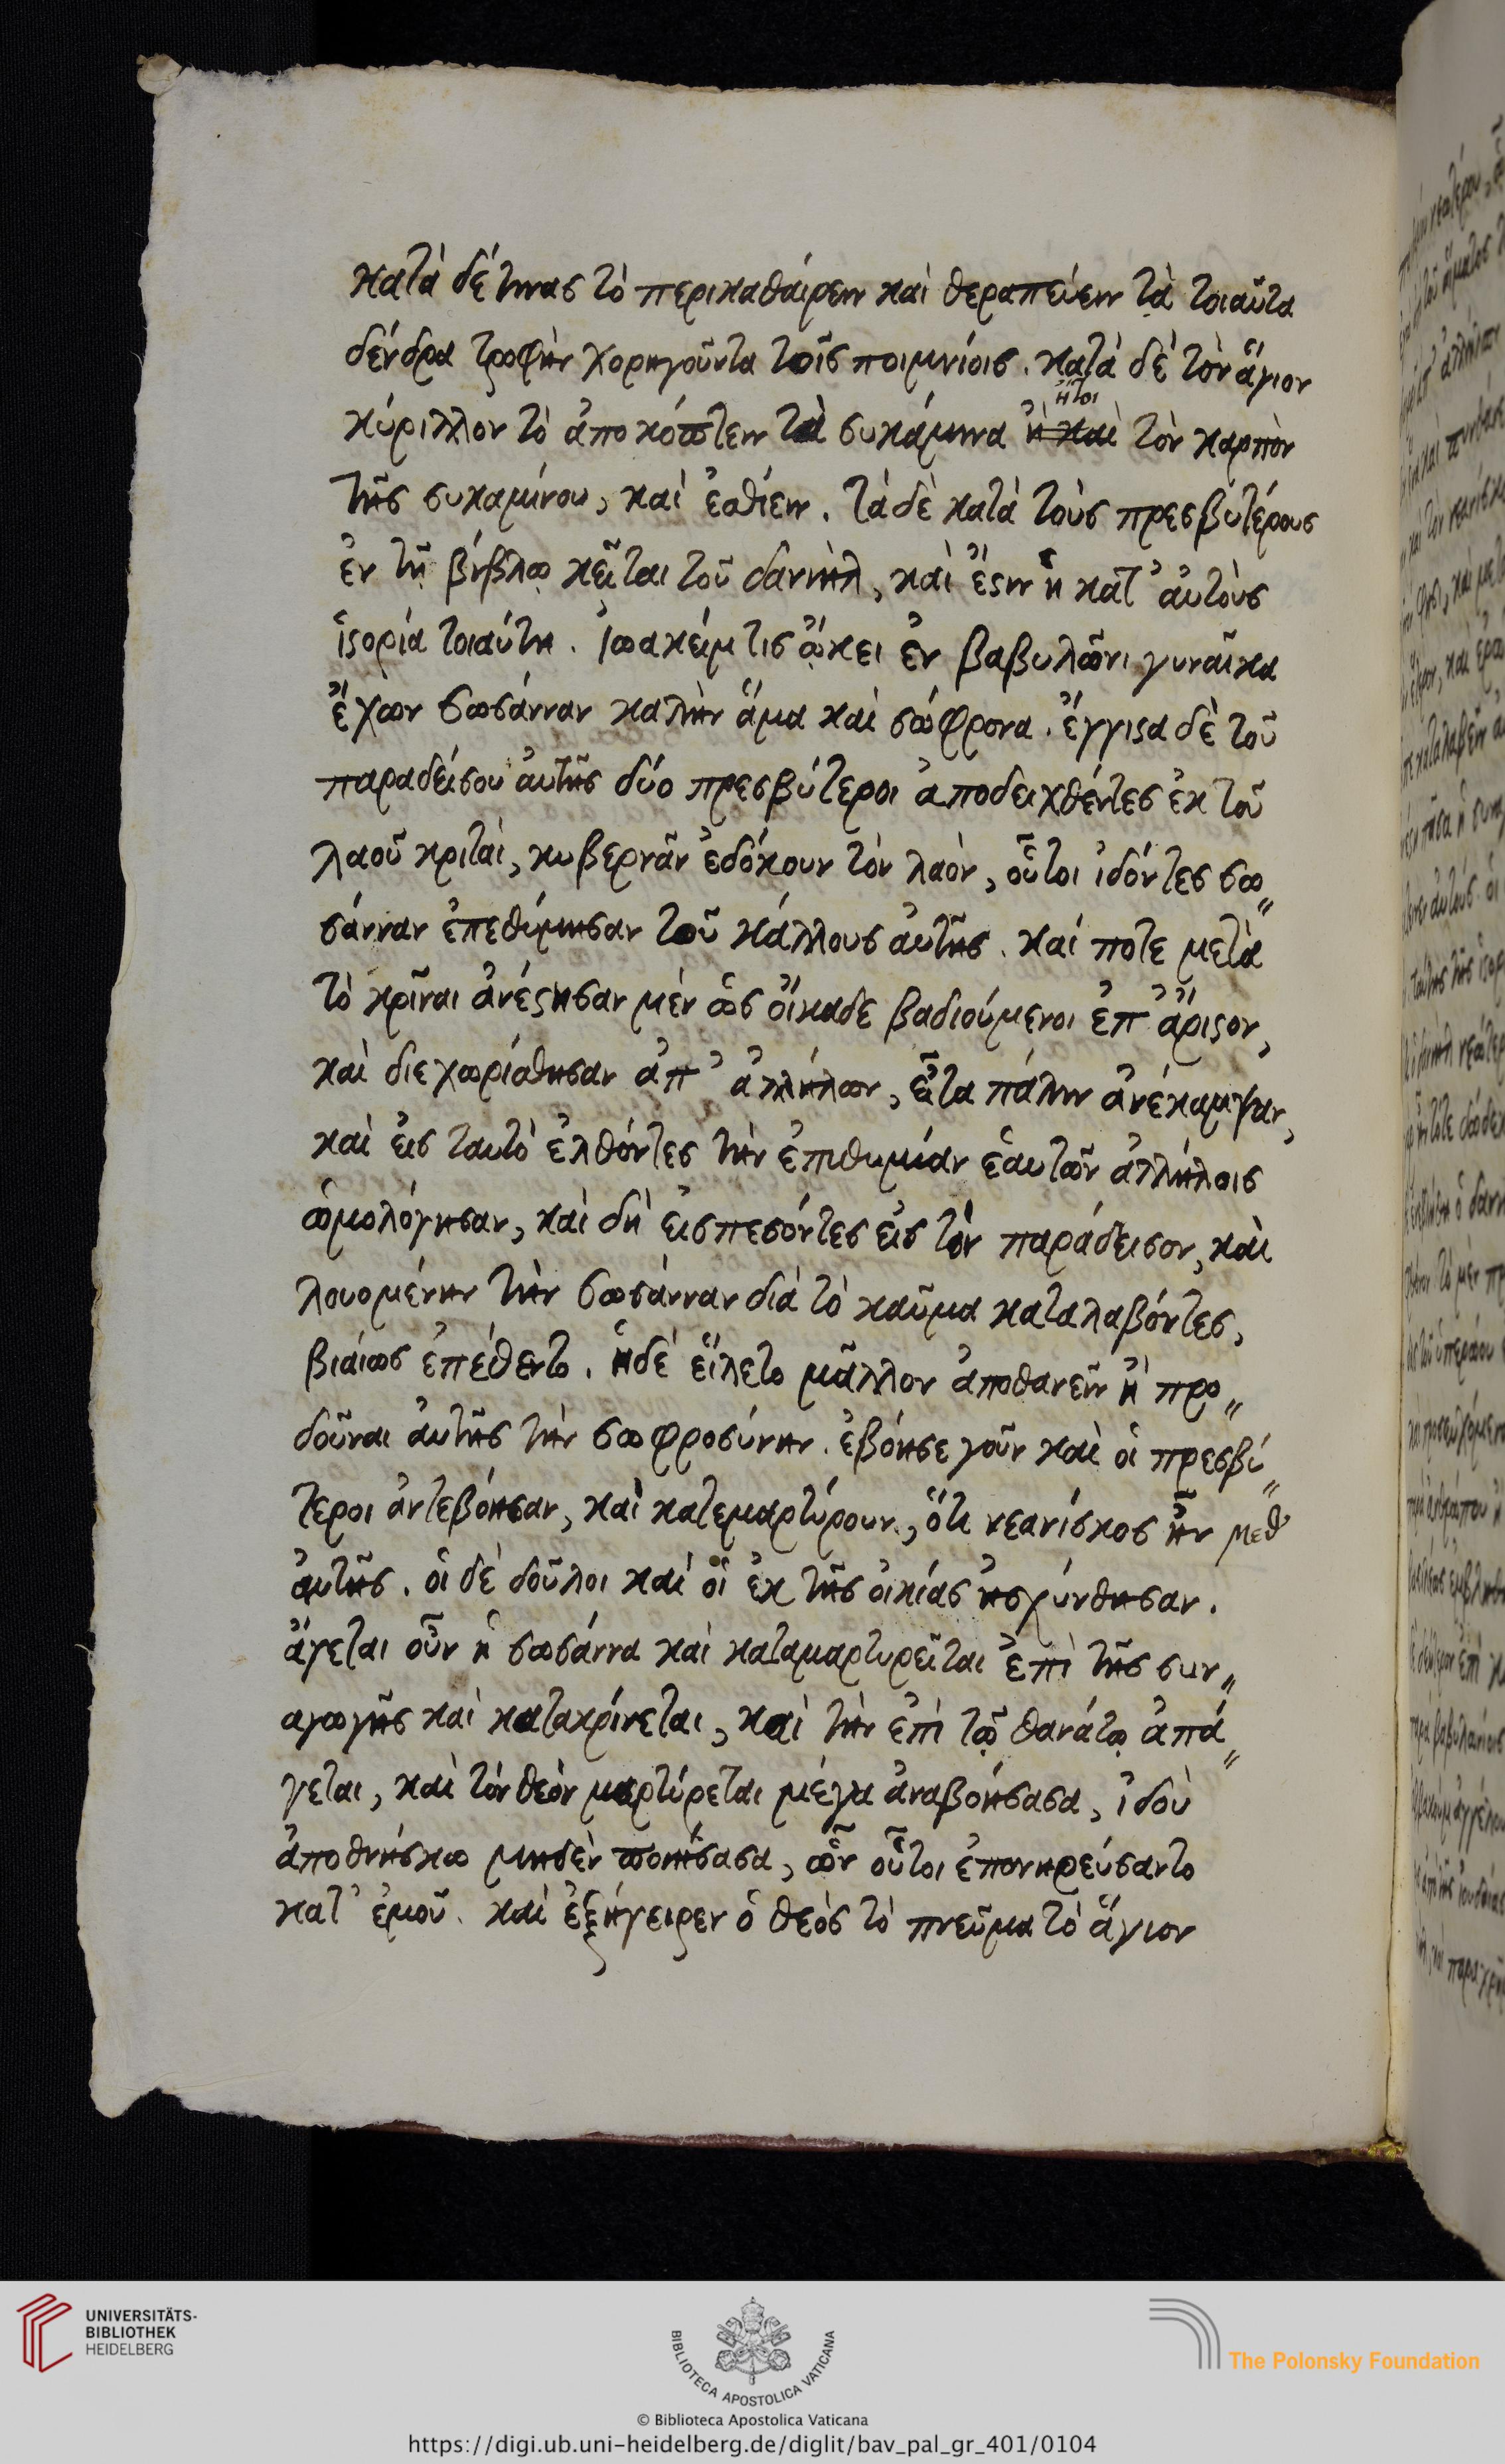 κατὰ δέ τινας τὸ περικαθαίρειν καὶ θεραπεύειν τὰ τοιαῦτα
δένδρα τροφὴν χορηγοῦντα τοῖς ποιμνίοις. κατὰ δὲ τὸν ἅγιον
κύριλλον τὸ ἀποκόπτειν τὰ συκάμινα ἢ καὶ ἤτοι τὸν καρπὸν
τῆς συκαμίνου, καὶ ἐσθίειν. τὰ δὲ κατὰ τοὺς πρεσβυτέρους
ἐν τῇ βίβλῳ κεῖται τοῦ δανιὴλ, καὶ ἔστιν ἡ κατ' αὐτοὺς
ἱστορία τοιαύτη. Ἰωακείμ τις ᾤκει ἐν βαβυλῶνι γυναῖκα
ἔχων σωσάνναν καλὴν ἅμα καὶ σώφρονα. ἔγγιστα δὲ τοῦ
παραδείσου αὐτῆς δύο πρεσβύτεροι ἀποδειχθέντες ἐκ τοῦ
λαοῦ κριταὶ, κυβερνᾶν ἐδόκουν τὸν λαὸν, οὗτοι ἰδόντες σω〃
σάνναν ἐπεθύμησαν τοῦ κάλλους αὐτῆς. καί ποτε μετὰ
τὸ κρῖναι ἀνέστησαν μὲν ὡς οἴκαδε βαδιούμενοι ἐπ' ἄριστον,
καὶ διεχωρίσθησαν ἀπ' ἀλλήλων, εἶτα πάλιν ἀνέκαμψαν,
καὶ εἰς ταυτὸ ἐλθόντες τὴν ἐπιθυμίαν ἑαυτῶν ἀλλήλοις
ὡμολόγησαν, καὶ δὴ εἰσπεσόντες εἰς τὸν παράδεισον, καὶ
λουομένην τὴν σωσάνναν διὰ τὸ καῦμα καταλαβόντες,
βιαίως ἐπέθεντο. ἡ δὲ εἵλετο μᾶλλον ἀποθανεῖν ἢ προ〃
δοῦναι αὐτῆς τὴν σωφροσύνην. ἐβόησε γοῦν καὶ οἱ πρεσβύ〃
τεροι ἀντεβόησαν, καὶ κατεμαρτύρουν, ὅτι νεανίσκος ἦν μεθ'
αὐτῆς. οἱ δὲ δοῦλοι καὶ οἱ ἐκ τῆς οἰκίας ἠσχύνθησαν.
ἄγεται οὖν ἡ σωσάννα καὶ καταμαρτυρεῖται ἐπὶ τῆς συν〃
αγωγῆς καὶ κατακρίνεται, καὶ τὴν ἐπὶ τῷ θανάτῳ ἀπά〃
γεται, καὶ τὸν θεὸν μαρτύρεται μέγα ἀναβοήσασα, ἰδοὺ
ἀποθνήσκω μηδὲν ποιήσασα, ὧν οὗτοι ἐπονηρεύσαντο
κατ' ἐμοῦ. καὶ ἐξήγειρεν ὁ θεὸς τὸ πνεῦμα τὸ ἅγιον
UNIVERSITÄTS-
BIBLIOTHEK
HEIDELBERG
BIBLIOTECA APOSTOLICA VATICANA
The Polonsky Foundation
© Biblioteca Apostolica Vaticana
https://digi.ub.uni-heidelberg.de/diglit/bav_pal_gr_401/0104